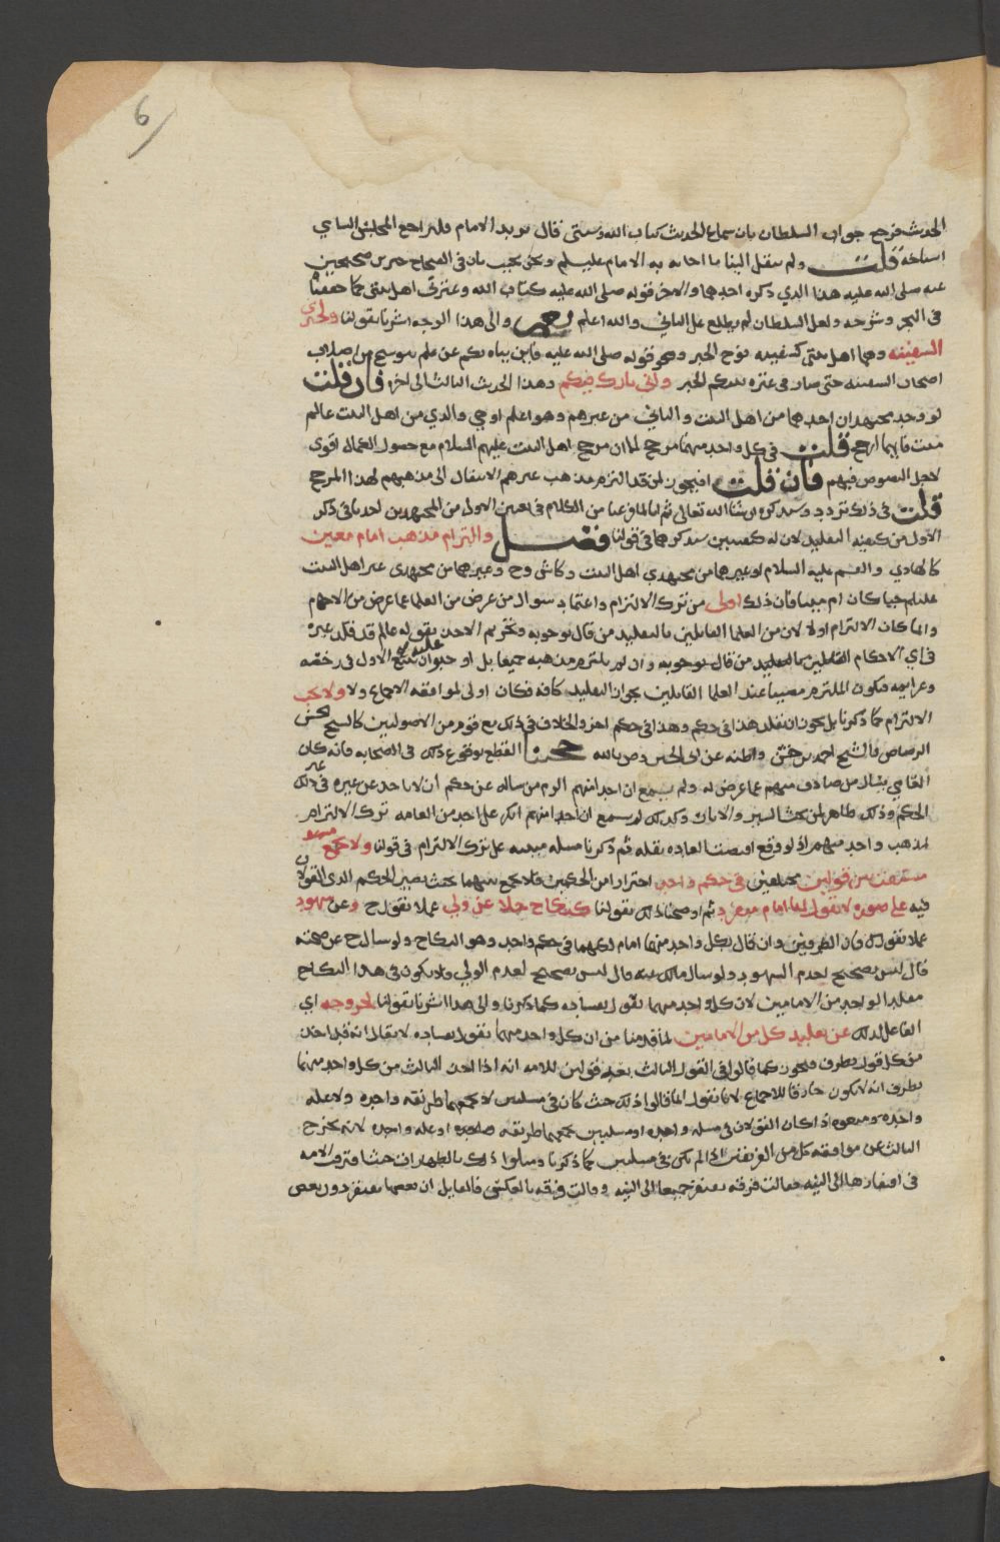 6
الحديث فرجح جواب السلطان بان سماع الحديث كتاب الله وسنتي فقال مويد الامام فلتراجع المجلس الثاني
قلت ولم ينقل الينا ما اجاب به الامام عليلم ونحن نجيب بان في الصحاح خبرين صحيحين
عنه صلى الله عليه هذا الذي ذكره احدهما والاخر قوله صلى الله عليه كتاب الله وعترتي اهل بيتي كما حققنا
في البحر وشرحه ولعل السلطان لم يطلع على الثاني والله اعلم نعم والى هذا الوجه اشرنا بقولنا ولخبري
السفينة وهما اهل بيتي كسفينة نوح الخبر وهو قوله صلى الله عليه فاين يتاه بكم عن علم تنوسخ من اصلاب
اصحاب السفينة حتى صار في عترة نبيكم الخبر واني تارك فيكم وهذا الحديث الثالث الى اخره فان قلت
لو وجد مجتهدان احدهما من اهل البيت والثاني من غيرهم وهو اعلم او حي والذي من اهل البيت عالم
ميت فايهما ارجح قلت في كل واحد منهما مرجح الا ان مرجح اهل البيت عليهم السلام مع حصول الكمال اقوى
لاجل النصوص فيهم فان قلت افيجوز لمن قد التزم مذهب غيرهم الانتقال الى مذهبهم لهذا المرجح
قلت في ذلك تردد وسنذكره ان شا الله تعالى ثم انا لما فرغنا من الكلام في تعيين الاولى من المجتهدين اخذنا في ذكر
الاولى من كيفية التقليد لان له كيفيتين سنذكرهما في قولنا فصل والتزام مذهب امام معين
كالهادي والقسم عليه السلام او غيرهما من مجتهدي اهل البيت وكاش وح وغيرهما من مجتهدي غير اهل البيت
عليلم حيا كان ام ميتا فان ذلك اولى من ترك الالتزام واعتماد سوال من عرض من العلما عما عرض من الاحكام
وانما كان الالتزام اولى لان من العلما القائلين بالتقليد من قال بوجوبه وتحريم الاخذ بقوله عالم قد قلد غيره
في اي الاحكام القائلين بالتقليد من قال بوجوبه وان لم يلتزم مذهبه جميعا بل اوجبوا عليه تتبع الاول في رخصه
وعزايمه فيكون الملتزم مصيبا عند العلما القائلين بجواز التقليد كافة فكان اولى لموافقة الاجماع ولا ولا يجب
الالتزام كما ذكرنا بل يجوز ان يقلد هذا في حكم وهذا في حكم اخر والخلاف في ذلك مع قوم من الاصوليين كالشيخ الحسن
الرصاص والشيخ احمد بن حنش واظنه عن ابي الحسين وص بالله حجتنا القطع بوقوع ذلك في الصحابة فانه كان
العامي يسال من صادف منهم عما عرض له ولم يسمع ان احدا منهم الزم من ساله عن حكم ان لا ياخذ عن غيره في غير ذلك
الحكم وذلك ظاهر لمن بحث السير والاثار وكذلك لم يسمع ان احدا منهم انكر على احد من العامة ترك الالتزام
لمذهب واحد منهم اذ لو وقع اقتضت العادة بنقله ثم ذكرنا مسلة مبنية على ترك الالتزام في قولنا ولا يجمع
مستفت بين قولين مختلفين في حكم واحد احترازا من الحكمين فلا يجمع بينهما بحيث يصير الحكم الذي القولان
فيه على صورة لا يقول بها امام منفرد ثم اوضحنا ذلك بقولنا كنكاح خلا عن ولي عملا بقول ح وعن شهود
عملا بقول ك فان الطرفين وان قال بكل واحد منهما امام لكنهما في حكم واحد وهو النكاح ولو سال ح عن صحته
قال ليس بصحيح لعدم الشهود ولو سال مالك عنه قال ليس بصحيح لعدم الولي فلا يكون في هذا النكاح
مقلدا لواحد من الامامين لان كل واحد منهما يقول بفساده كما ذكرنا والى هذا اشرنا بقولنا لخروجه اي
الفاعل لذلك عن تقليد كل من الامامين لما قدمنا من ان كل واحد منهما يقول بفساده لا يقال انه قد اخذ
من كل قول بطرف فيجوز كما قالوا في القول الثالث بعد قولين للامة انه اذا اخذ الثالث من كل واحد منهما
بطرف انه لا يكون خارقا للاجماع لانا نقول انما قالوا ذلك حيث كان في مسلتين لا يجمعهما طريقة واحدة ولا علة
واحدة ومنعوه اذا كان القولان في مسلة واحدة او مسلتين يجمعهما طريقة واحدة او علة واحدة لانه يخرج
الثالث عن موافقة كل من الفريقين اذا لم يكن في مسلتين كما ذكرنا ومثلوا ذلك بالطهارات حيث افترقت الامة
في افتقارها الى النية فقالت فرقة يفتقر جميعها الى النية وقالت فرقة بالعكس فالقايل ان بعضها يفتقر دون بعض